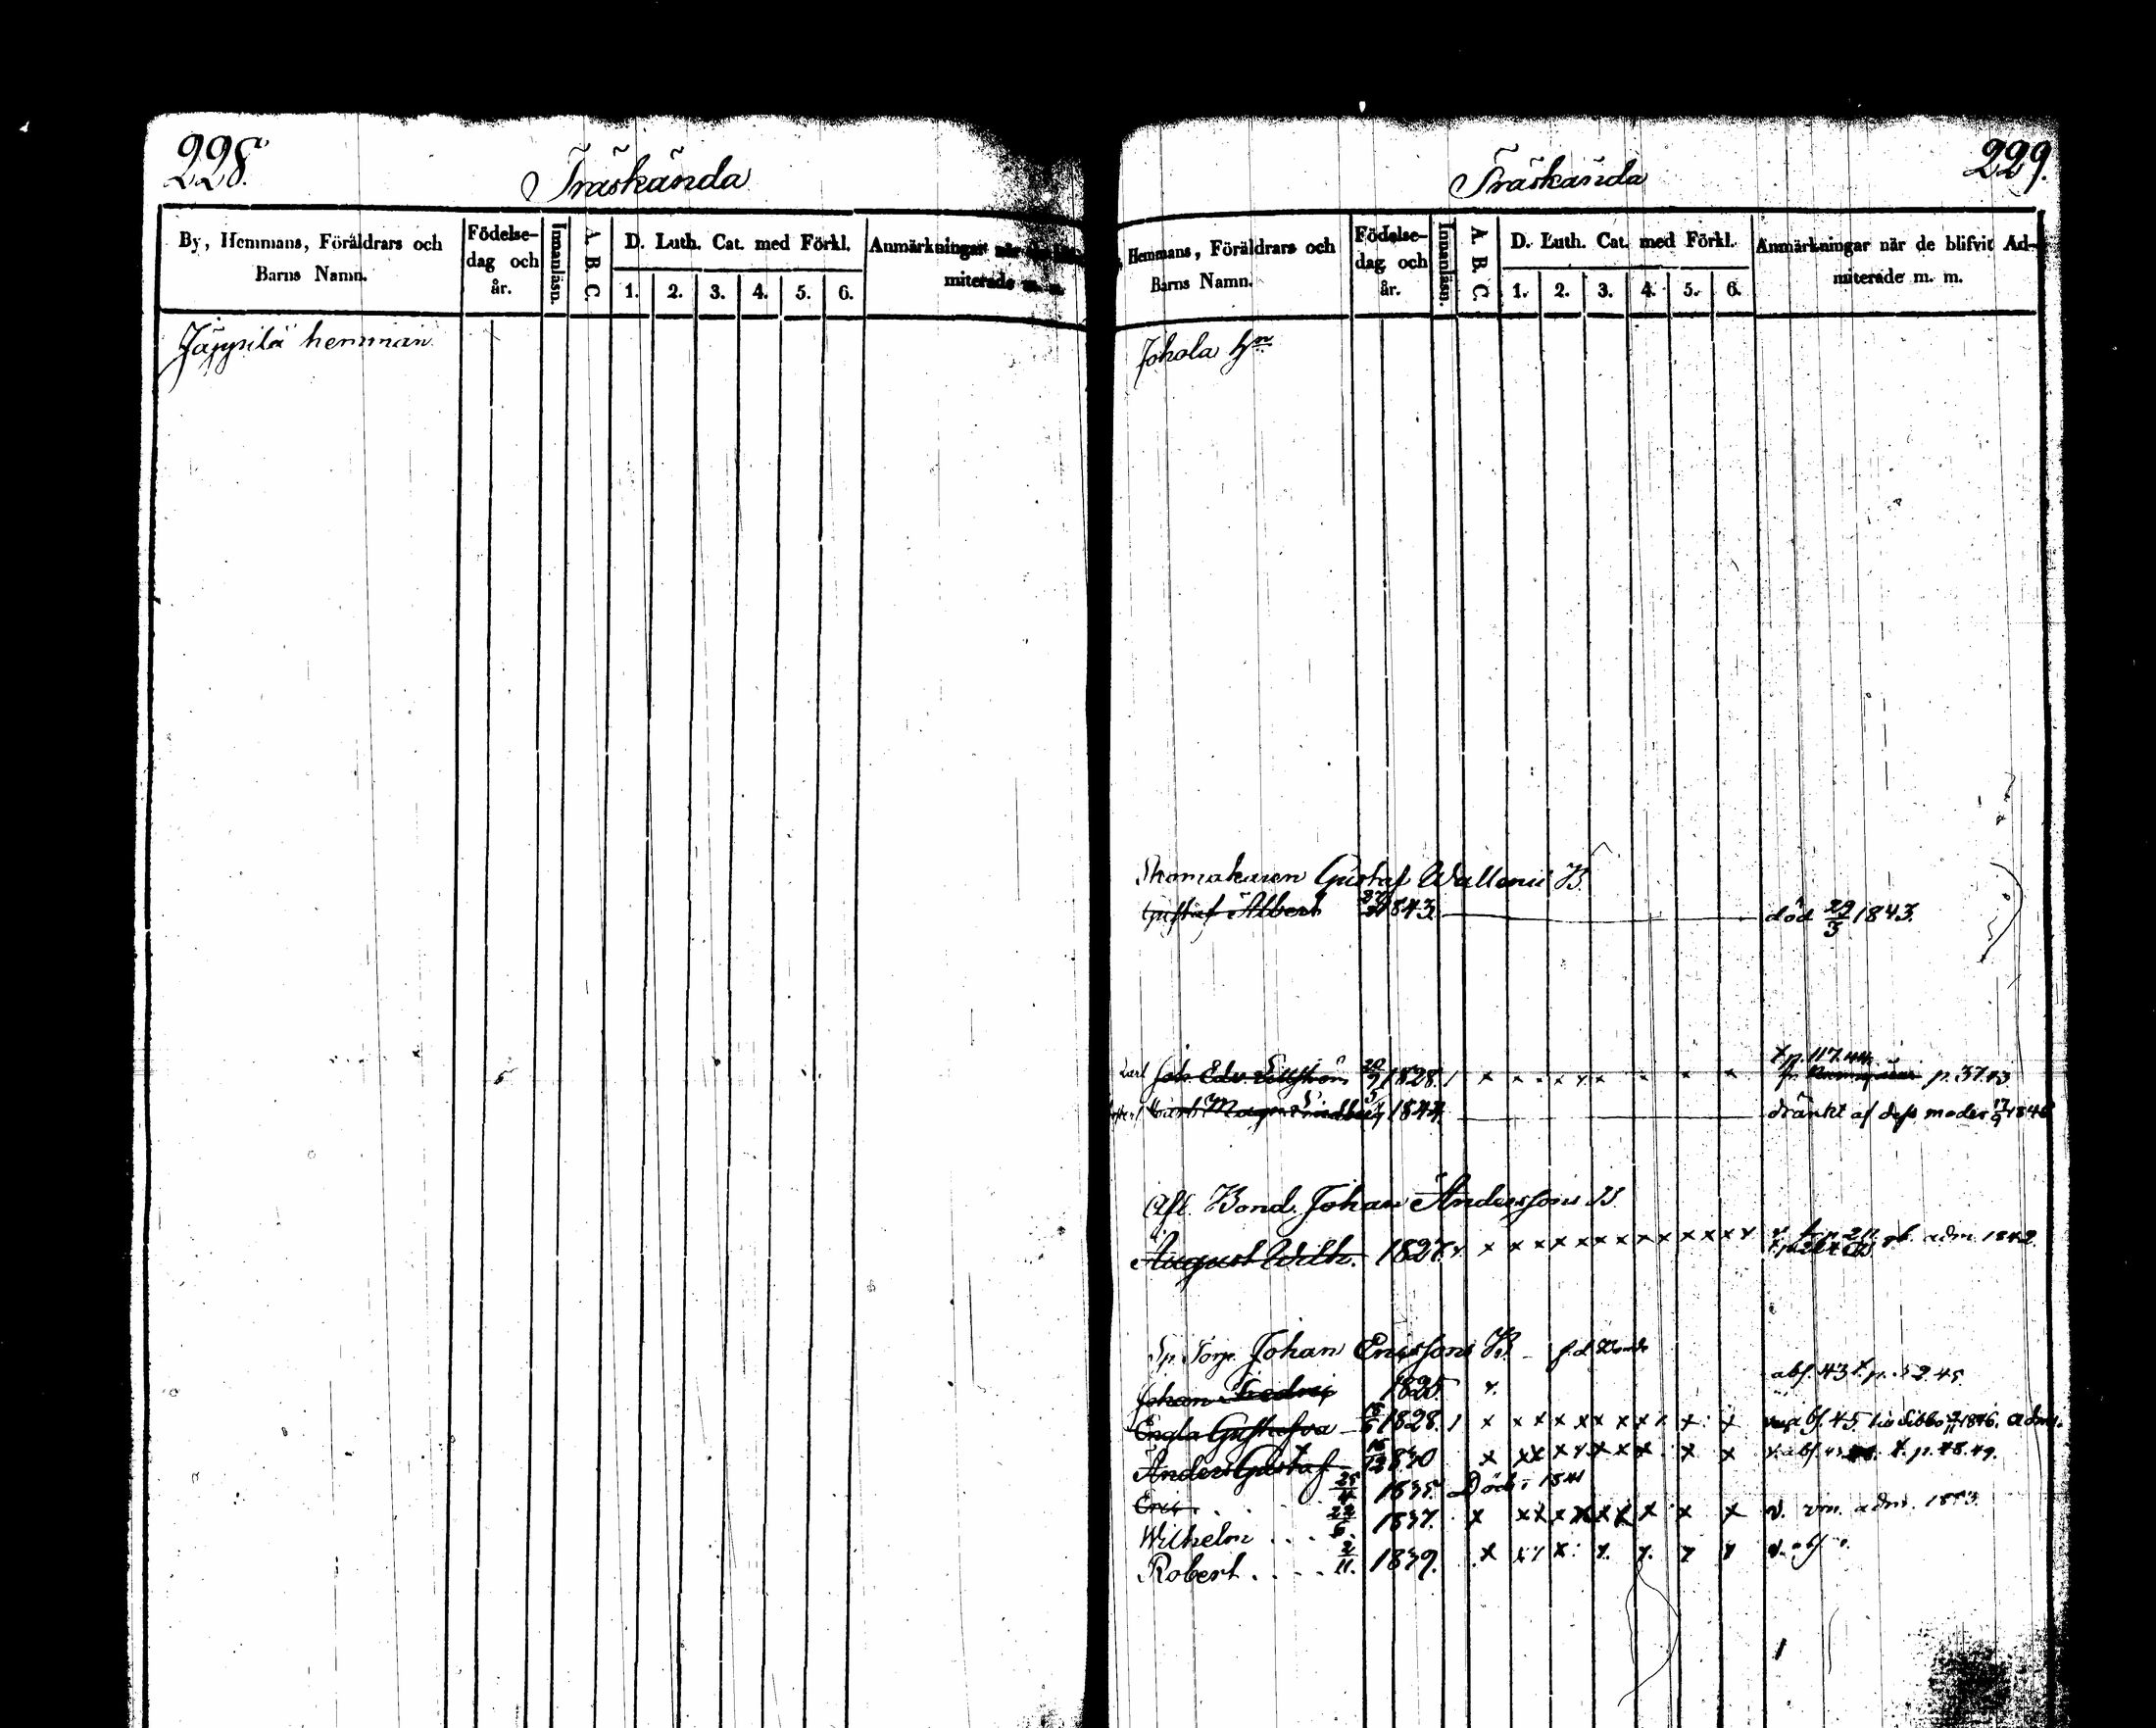 228.
Träskända
By, Hemmans, Föräldrars och
Barns Namn.
Födelse-
dag och
år.
Innanläsn.
A B C
D. Luth. Cat. med Förkl.
1. 2. 3. 4. 5. 6.
Anmärkningar när
miterade m. m.
Jäppilä hemman
229.
Träskända
Hemmans, Föräldrars och
Barns Namn.
Födelse-
dag och
år.
Innanläsn.
A B C
D. Luth. Cat. med Förkl.
1. 2. 3. 4. 5. 6.
Anmärkningar när de blifvit Ad-
miterade m. m.
Johola hn
Skomakaren Gustaf Wallenii B.
Gustaf Albert 1843. död 29/3 1843.
Joh. Edv. 1828. 1 x x x x x x x x x p. 37.43
p. 117.44.
Magn. Lindberg 1844. dränkt af dess moder 17/9 1846
Afl. Bond. Johan Anderssons B.
August Wilh. 1827. x x x x x x x x x x x x x adm. 1842.
Sp. Torp. Johan Ericssons B. f. d. Bonde
Johan Fredric 1825 abs. 43
Engla Gustafva 1828. 1 x x x x x x x x x x x abs. 45. Sibbo 1846. adm.
Anders Gustaf 15/12 1830 x x x x x x x x x x p. 48.49.
Eric 25/4 1835. Död 1841
Wilhelm 22/6. 1837. x x x x x x x x x x v. adm. 1853.
Robert 2/11. 1839. x x x x x x x x